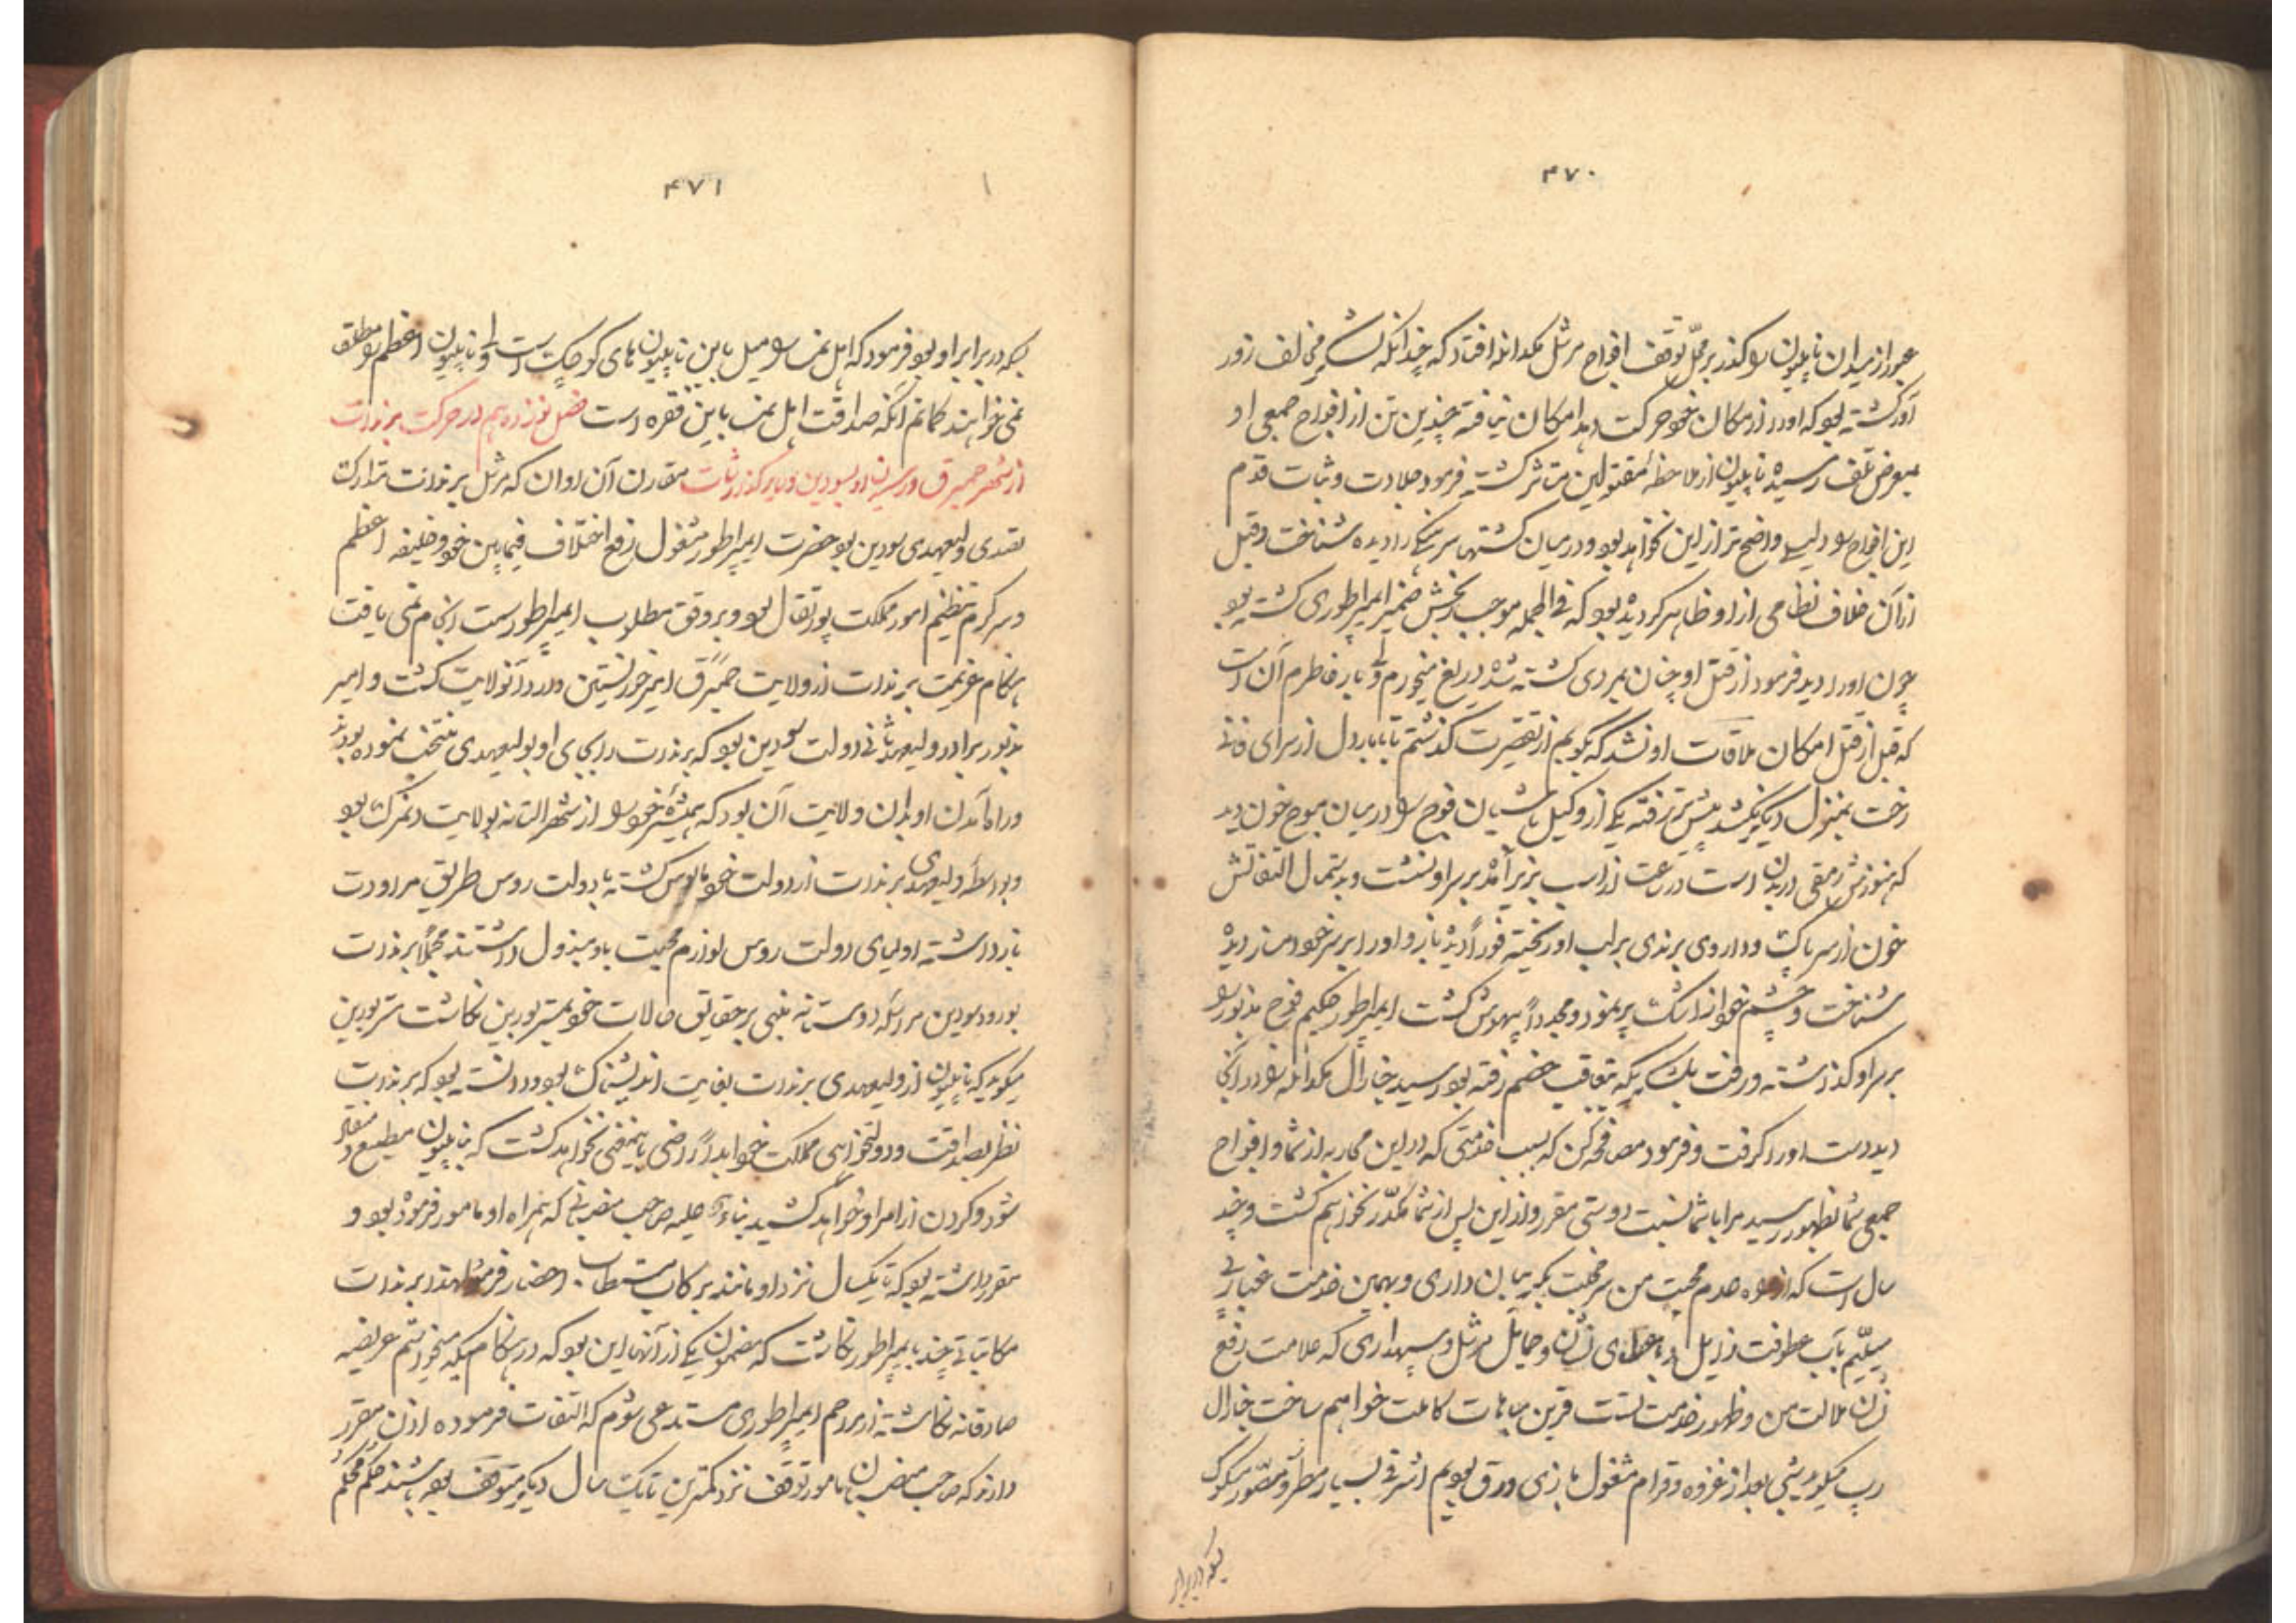 ۴۷۰
عبور از میدان ناپلیون را گذر بر محل توقف افواج مرشل مکدانله افتاد که چندانکه لشکر مخالف زور
آور گشته بود که او را از مکان خود حرکت دهد امکان نیافته چندین تن از افواج جمعی او
بمعرض تلف رسیده ناپلیون از ملاحظه مقتولین متاثر گشته فرمود جلادت و ثبات قدم
این افواج را دلیلی واضح تر از این نخواهد بود و در میان کشتها سرهنگی را دیده شناخت و قبل
از آن خلاف نظامی از او ظاهر گردیده بود که فی الجمله موجب رنجش ضمیر ایمپراطوری گشته بود
چون او را دید فرمود از قتل او چنان مردی کشته شده دریغ میخورم ولی بار خاطرم آن است
که قبل از قتل امکان ملاقات او نشد که بگویم از تقصیرت گذشتم تا با بار دل از سرای فانی
رخت بمنزل دیگر نکشد پیشتر رفته یکی از وکیل باشیان فوج را در میان موج خون دید
که هنوزش رمقی در بدن است در ساعت از اسب بزیر آمده بر سر او نشست و بدستمال التفاتش
خون از سر پاک و داروی برندی بر لب او ریخته فوراً دیده باز و او را بر سر خود دمساز دیده
شناخت و چشم خود از اشک پر نمود و مجدداً بیهوش گشت ایمپراطور حکیم فوج مذبور را
بر سر او گذاشته و رفت بلشکریکه بتعاقب خصم رفته بود رسید جنارال مکدانله را در آنجا
دید دست او را گرفت و فرمود مصافحه کن که بسبب خدمتی که در این محاربه از شما و افواج
جمعی شما بظهور رسید مرا با شما نسبت دوستی مقرر و از این پس از شما مکدّر نخواهم گشت و چند
سال است که از عدم محبت من سر خجلت بگریبان داری و بهمین خدمت غبار بی
میلیم بآب عطوفت زایل و باعطای نشان و حمایل مرشلی و سپهداری که علامت رفع
نشان ملالت من و ظهور خدمت تست قرین مباهات کاملت خواهم ساخت جنارال
رپ میگوید شبی بعد از غزوه وقرام مشغول بازی ورق بودیم اشرفی بسیار مطرّز و مصوّر مسکوک
بسکه در برابر
۴۷۱
بسکه در برابر او بود فرمود که اهل نمسا را میل باین ناپلیون های کوچک است و ناپلیون اعظم را مطلق
نمی خواهند کمانم آنکه صداقت اهل نمسا باین فقره است فصل نوزدهم در حرکت برندات
از شهر حمبرق و رسیدن او بسودین و سایر گذارشات مقارن آن اوان که مرشل برندات تدارک
تصدی ولیعهدی سودین بود حضرت ایمپراطور مشغول رفع اختلاف فیمابین خود و خلیفه اعظم
و سرگرم تنظیم امور مملکت پورتقال بود و بر وفق مطلب ایمپراطور ست انجام نمی یافت
هنگام عزیمت برندات از ولایت حمبرق امیر خورلستین وارد آنولایت گشت و امیر
مذبور برادر ولیعهد ثانی دولت سودین بود که برندات را بجای او بولیعهدی منتخب نموده بودند
و راه آمدن او بدان ولایت آن بود که همشیره خود را از شهر التانه بولایت دنمرک بود
و بواسطه ولیعهدی برندات از دولت خود مایوس گشته با دولت روس طریق مراودت
باز داشته اولیای دولت روس لوازم محبت باو مبذول داشتند مجملاً برندات
بورود سودین مراسله دوستانه مبنی بر حقایق حالات خود بمستر بورین نکاشت مستر بورین
میگوید که ناپلیون از ولیعهدی برندات بغایت اندیشناک بود و دانسته بود که برندات
نظر بصداقت و دولتخواهی مملکت خود ابداً راضی باینمعنی نخواهد گشت که ناپلیون مطیع و منقاد
شود و گردن از امر او خواهد کشید بناء علیه صاحب منصبانی که همراه او مامور فرموده بود و
مقرر داشته بود که تا یکسال نزد او بمانند برکاب مستطاب احضار فرمود لهذا برندات
مکاتباتی چند بایمپراطور نکاشت که مضمون یکی از آنها این بود که در هنگامیکه میخواستم عریضه
صادقانه نکاشته از مراحم ایمپراطوری مستدعی شوم که التفات فرموده اذن مقرر
دارند که صاحب منصبان مامور توقف نزد کمترین تا یک سال دیگر متوقف بوده باشند حکم محکم